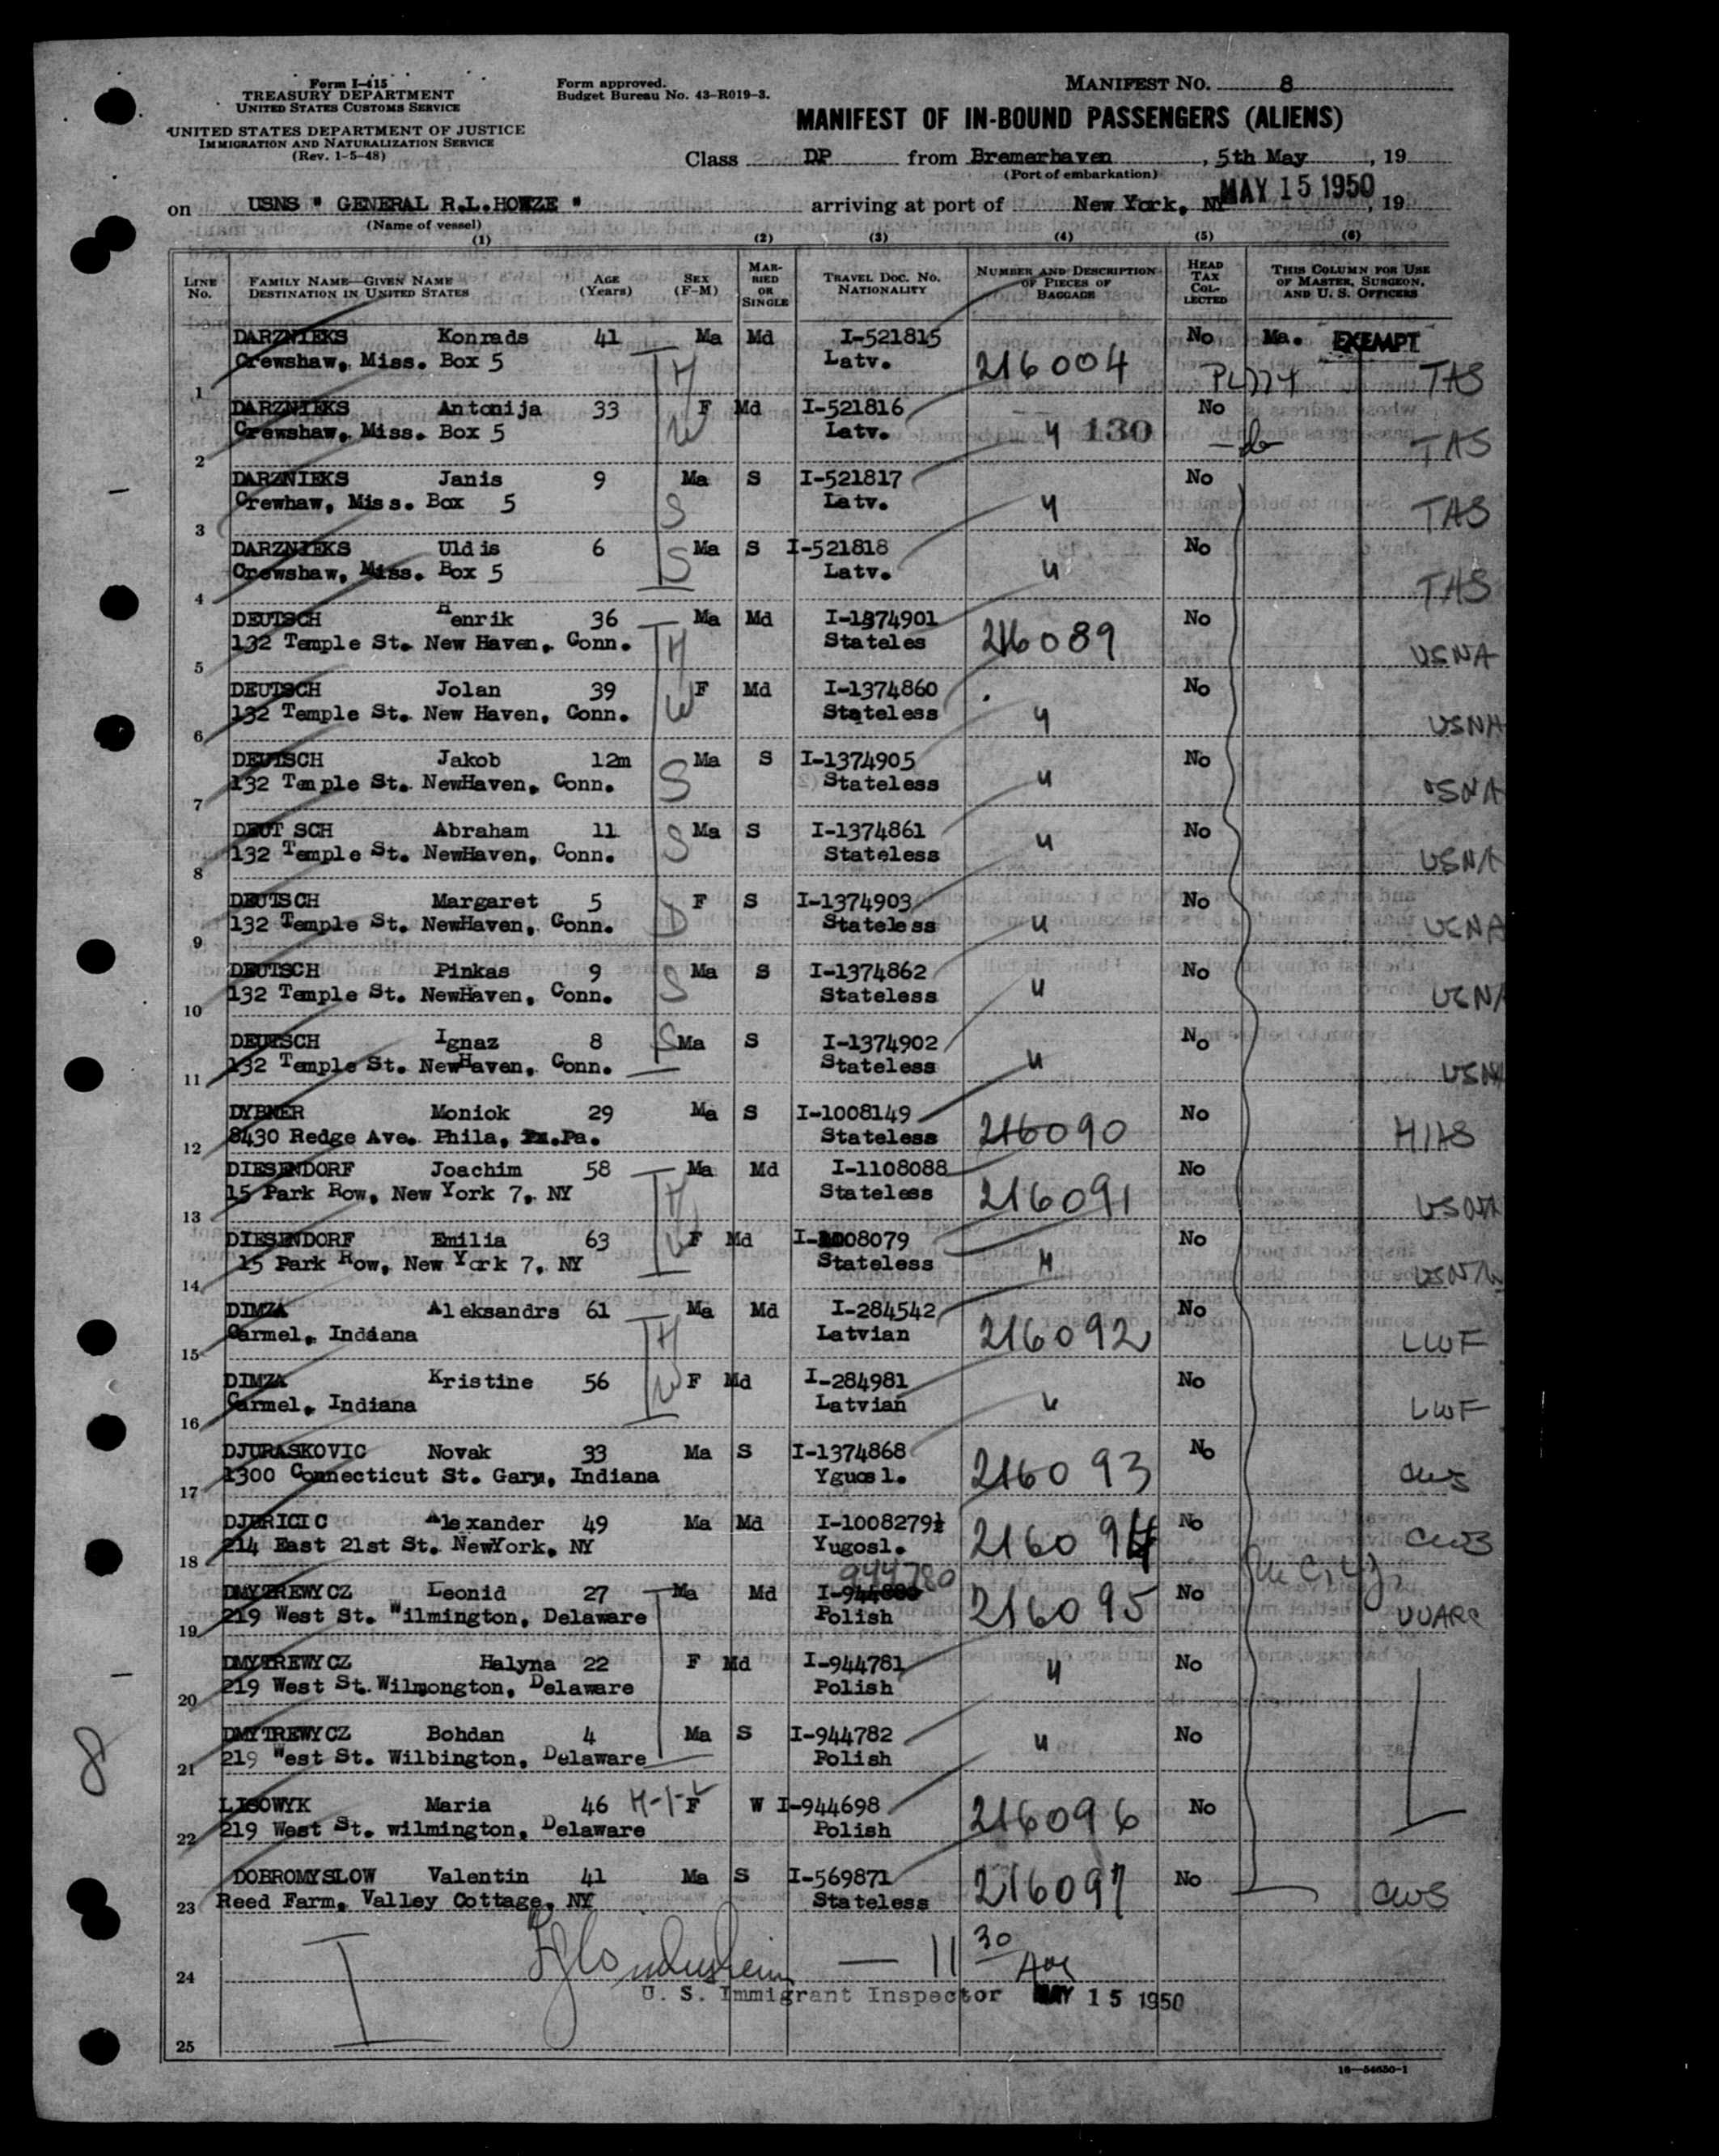 Form I-415
TREASURY DEPARTMENT
UNITED STATES CUSTOMS SERVICE
UNITED STATES DEPARTMENT OF JUSTICE
IMMIGRATION AND NATURALIZATION SERVICE
(Rev. 1-5-48)
Form approved.
Budget Bureau No. 43-R019-3.
MANIFEST No. 8
MANIFEST OF IN-BOUND PASSENGERS (ALIENS)
Class DP from Bremerhaven, 5th May, 19
(Port of embarkation)
on USNS " GENERAL R.L.HOWZE " arriving at port of New York, NY MAY 15 1950, 19
(Name of vessel)
(1) (2) (3) (4) (5) (6)
LINE No. FAMILY NAME—GIVEN NAME DESTINATION IN UNITED STATES AGE (Years) SEX (F-M) MARRIED OR SINGLE TRAVEL DOC. NO. NATIONALITY NUMBER AND DESCRIPTION OF PIECES OF BAGGAGE HEAD TAX COLLECTED THIS COLUMN FOR USE OF MASTER, SURGEON, AND U. S. OFFICERS
DARZNIEKS Konrads 41 Ma Md I-521815 No Ma. EXEMPT
1 Crewshaw, Miss. Box 5 H Latv. 216004 TAS
DARZNIEKS Antonija 33 F Md I-521816 No
2 Crewshaw, Miss. Box 5 W Latv. " 130 TAS
DARZNIEKS Janis 9 Ma S I-521817 No
3 Crewhaw, Miss. Box 5 S Latv. " TAS
DARZNIEKS Uldis 6 Ma S I-521818 No
4 Crewshaw, Miss. Box 5 S Latv. " TAS
DEUTSCH Henrik 36 Ma Md I-1374901 No
5 132 Temple St. New Haven, Conn. H Stateles 216089 USNA
DEUTSCH Jolan 39 F Md I-1374860 No
6 132 Temple St. New Haven, Conn. W Stateless " USNA
DEUTSCH Jakob 12m Ma S I-1374905 No
7 132 Temple St. NewHaven, Conn. S Stateless " USNA
DEUT SCH Abraham 11 Ma S I-1374861 No
8 132 Temple St. NewHaven, Conn. S Stateless " USNA
DEUTSCH Margaret 5 F S I-1374903 No
9 132 Temple St. NewHaven, Conn. D Stateless " USNA
DEUTSCH Pinkas 9 Ma S I-1374862 No
10 132 Temple St. NewHaven, Conn. S Stateless " USNA
DEUTSCH Ignaz 8 S Ma S I-1374902 No
11 132 Temple St. NewHaven, Conn. Stateless " USNA
DYBNER Moniok 29 Ma S I-1008149 No
12 8430 Redge Ave. Phila, Pa. Stateless 216090 HIAS
DIESENDORF Joachim 58 Ma Md I-1108088 No
13 15 Park Row, New York 7, NY H Stateless 216091 USNA
DIESENDORF Emilia 63 F Md I-1008079 No
14 15 Park Row, New York 7, NY W Stateless " USNA
DIMZA Aleksandrs 61 Ma Md I-284542 No
15 Carmel, Indiana H Latvian 216092 LWF
DIMZA Kristine 56 F Md I-284981 No
16 Carmel, Indiana W Latvian " LWF
DJURASKOVIC Novak 33 Ma S I-1374868 No
17 1300 Connecticut St. Gary, Indiana Yguosl. 216093 CWS
DJERICIC Alexander 49 Ma Md I-1008279½ No
18 214 East 21st St. NewYork, NY Yugosl. 216094 CWS
944780
DMYTREWYCZ Leonid 27 Ma Md No
19 219 West St. Wilmington, Delaware Polish 216095 UUARC
DMYTREWYCZ Halyna 22 F Md I-944781 No
20 219 West St. Wilmongton, Delaware Polish "
DMYTREWYCZ Bohdan 4 Ma S I-944782 No
21 219 West St. Wilbington, Delaware Polish "
8
LISOWYK Maria 46 F W I-944698 No
22 219 West St. wilmington, Delaware Polish 216096
DOBROMYSLOW Valentin 41 Ma S I-569871 No
23 Reed Farm, Valley Cottage, NY Stateless 216097 CWS
24 — 11 30
U. S. Immigrant Inspector MAY 15 1950
25
16—54650-1